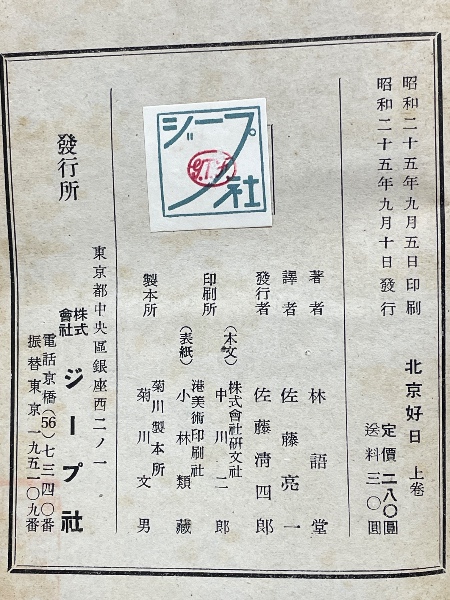 昭和二十五年九月五日印刷
昭和二十五年九月十日發行
北京好日 上卷
定價二八〇圓
送料三〇圓
著者 林語堂
譯者 佐藤亮一
發行者 佐藤淸四郎
印刷所
(本文) 株式會社硏文社
中川二郎
(表紙) 港美術印刷社
小林類藏
製本所 菊川製本所
菊川文男
ジープ社
發行所
東京都中央區銀座西二ノ一
株式會社 ジープ社
電話京橋(56)七三四〇番
振替東京一九五一〇九番